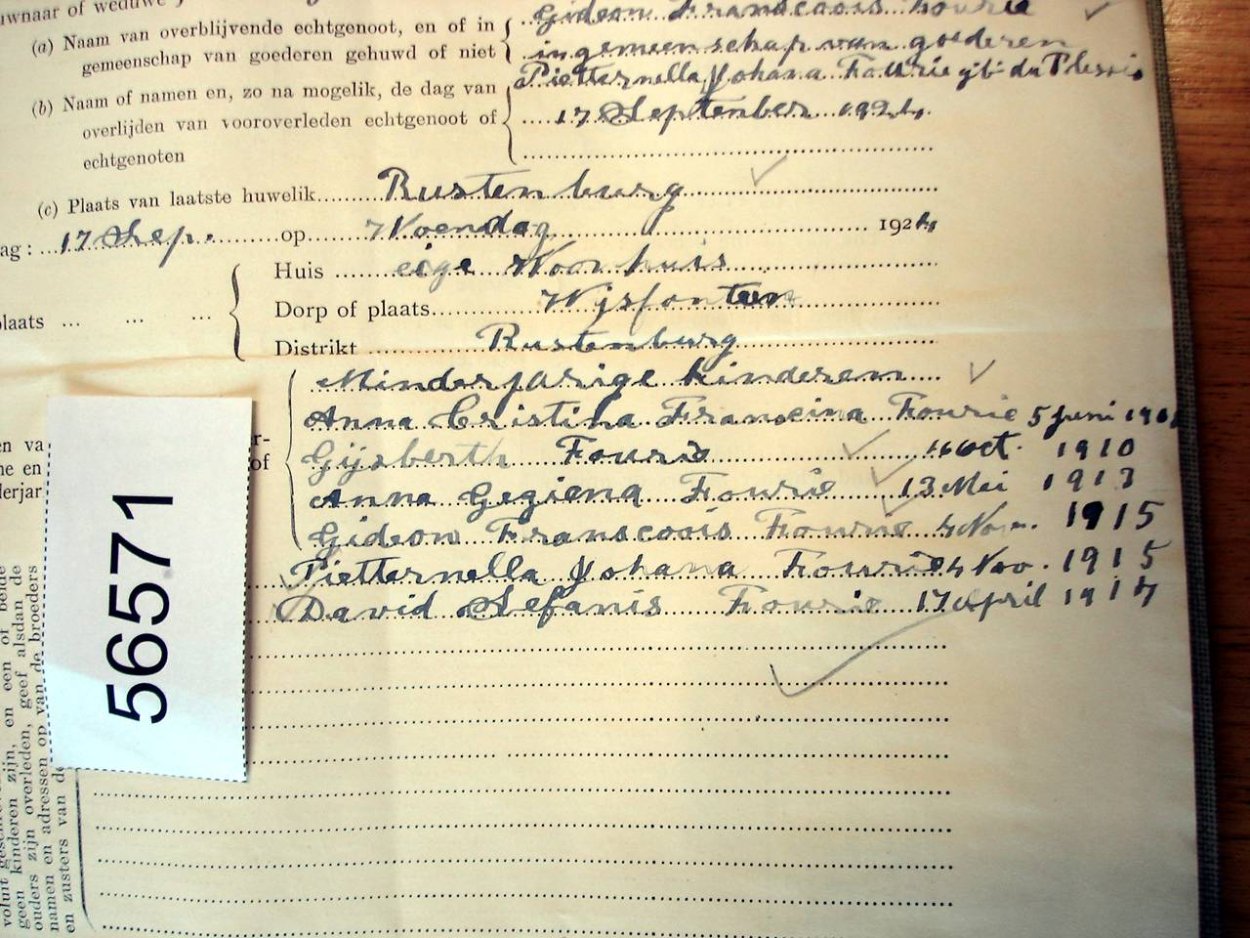 uwnaar of weduwe
(a) Naam van overblijvende echtgenoot, en of in gemeenschap van goederen gehuwd of niet
Gideon Franscoois Fourie
in gemeenschap van goederen
(b) Naam of namen en, zo na mogelik, de dag van overlijden van vooroverleden echtgenoot of echtgenoten
Pietternella Johana Fourie gb du Plessis
17 September 1924.
(c) Plaats van laatste huwelik Rustenburg
ag: 17 Sep. op Woendag 1924
Huis eige Woonhuis
laats ... ... ...
Dorp of plaats Wysfontein
Distrikt Rustenburg
Minderjarige kinderen
Anna Cristina Franscina Fourie 5 Juni
en va
r-
Gijsberth Fourie Oct. 1910
ne en
of
derjar
Anna Gegiena Fourie 13 Mei 1913
Gideon Franscoois Fourie 4 Nov. 1915
Pietternella Johana Fourie 4 Nov. 1915
David Stefanis Fourie 17 April 1917
56571
voluit
geen kinderen zijn, en een of beide
ouders zijn overleden, geef alsdan de
namen en adressen op van de broeders
en zusters van de